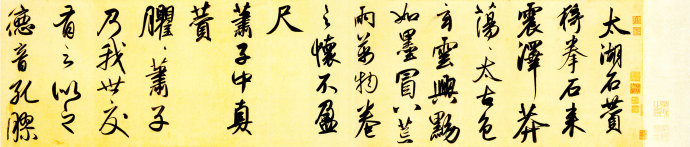 太湖石贊
猗拳石来
震澤莽
蕩〻太古色
玄雲興黝
如墨冒八荒
雨萬物卷
之懷不盈
尺
蕭子中真
贊
臞〻蕭子
乃我世交
有之似之
德音孔膠